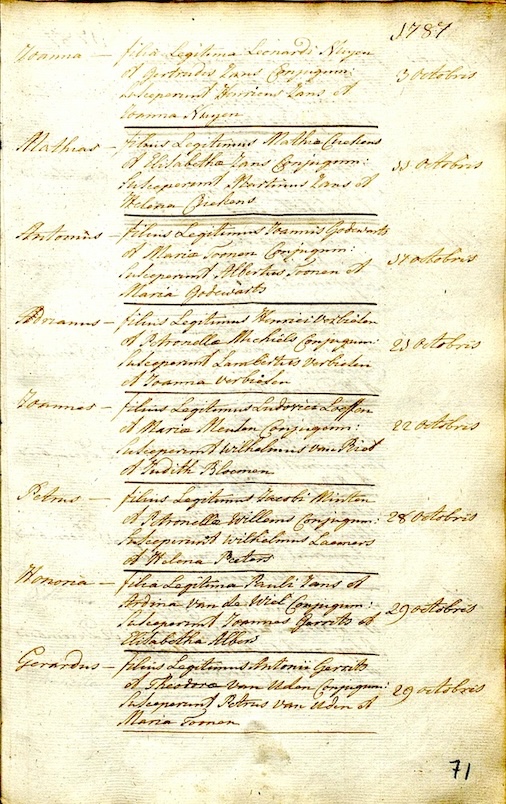 1787
Joanna — filia Legitima Leonardi Nuyen
et Gertrudis Jans Conjugum:
susceperunt Henricus Jans et
Joanna Nuyen
3 octobris
Mathias — filius Legitimus Mathiæ
et Elisabetha Jans Conjugum:
susceperunt Martinus Jans et
Helena
11 octobris
Antonius — filius Legitimus Joannis Godewarts
et Maria Toonen Conjugum:
susceperunt Albertus Toonen et
Maria Godewarts
17 octobris
Adrianus — filius Legitimus Henrici Verbielen
et Petronella Michiels Conjugum:
susceperunt Lambertus Verbielen
et Joanna Verbielen
21 octobris
Joannes — filius Legitimus Ludovici Loeffen
et Maria Conjugum:
susceperunt Wilhelmus van
et Judith Bloemen
22 octobris
Petrus — filius Legitimus Jacobi Winten
et Petronella Willems Conjugum:
susceperunt Wilhelmus Laemers
et Helena Peeters
28 octobris
Honoria — filia Legitima Pauli Jans et
Ardina van de Wiel Conjugum:
susceperunt Joannes Gerrits et
Elisabetha Albers
29 octobris
Gerardus — filius Legitimus Antonii Gerrits
et Theodora van Uden Conjugum:
susceperunt Petrus van Uden et
Maria Toonen
29 octobris
71